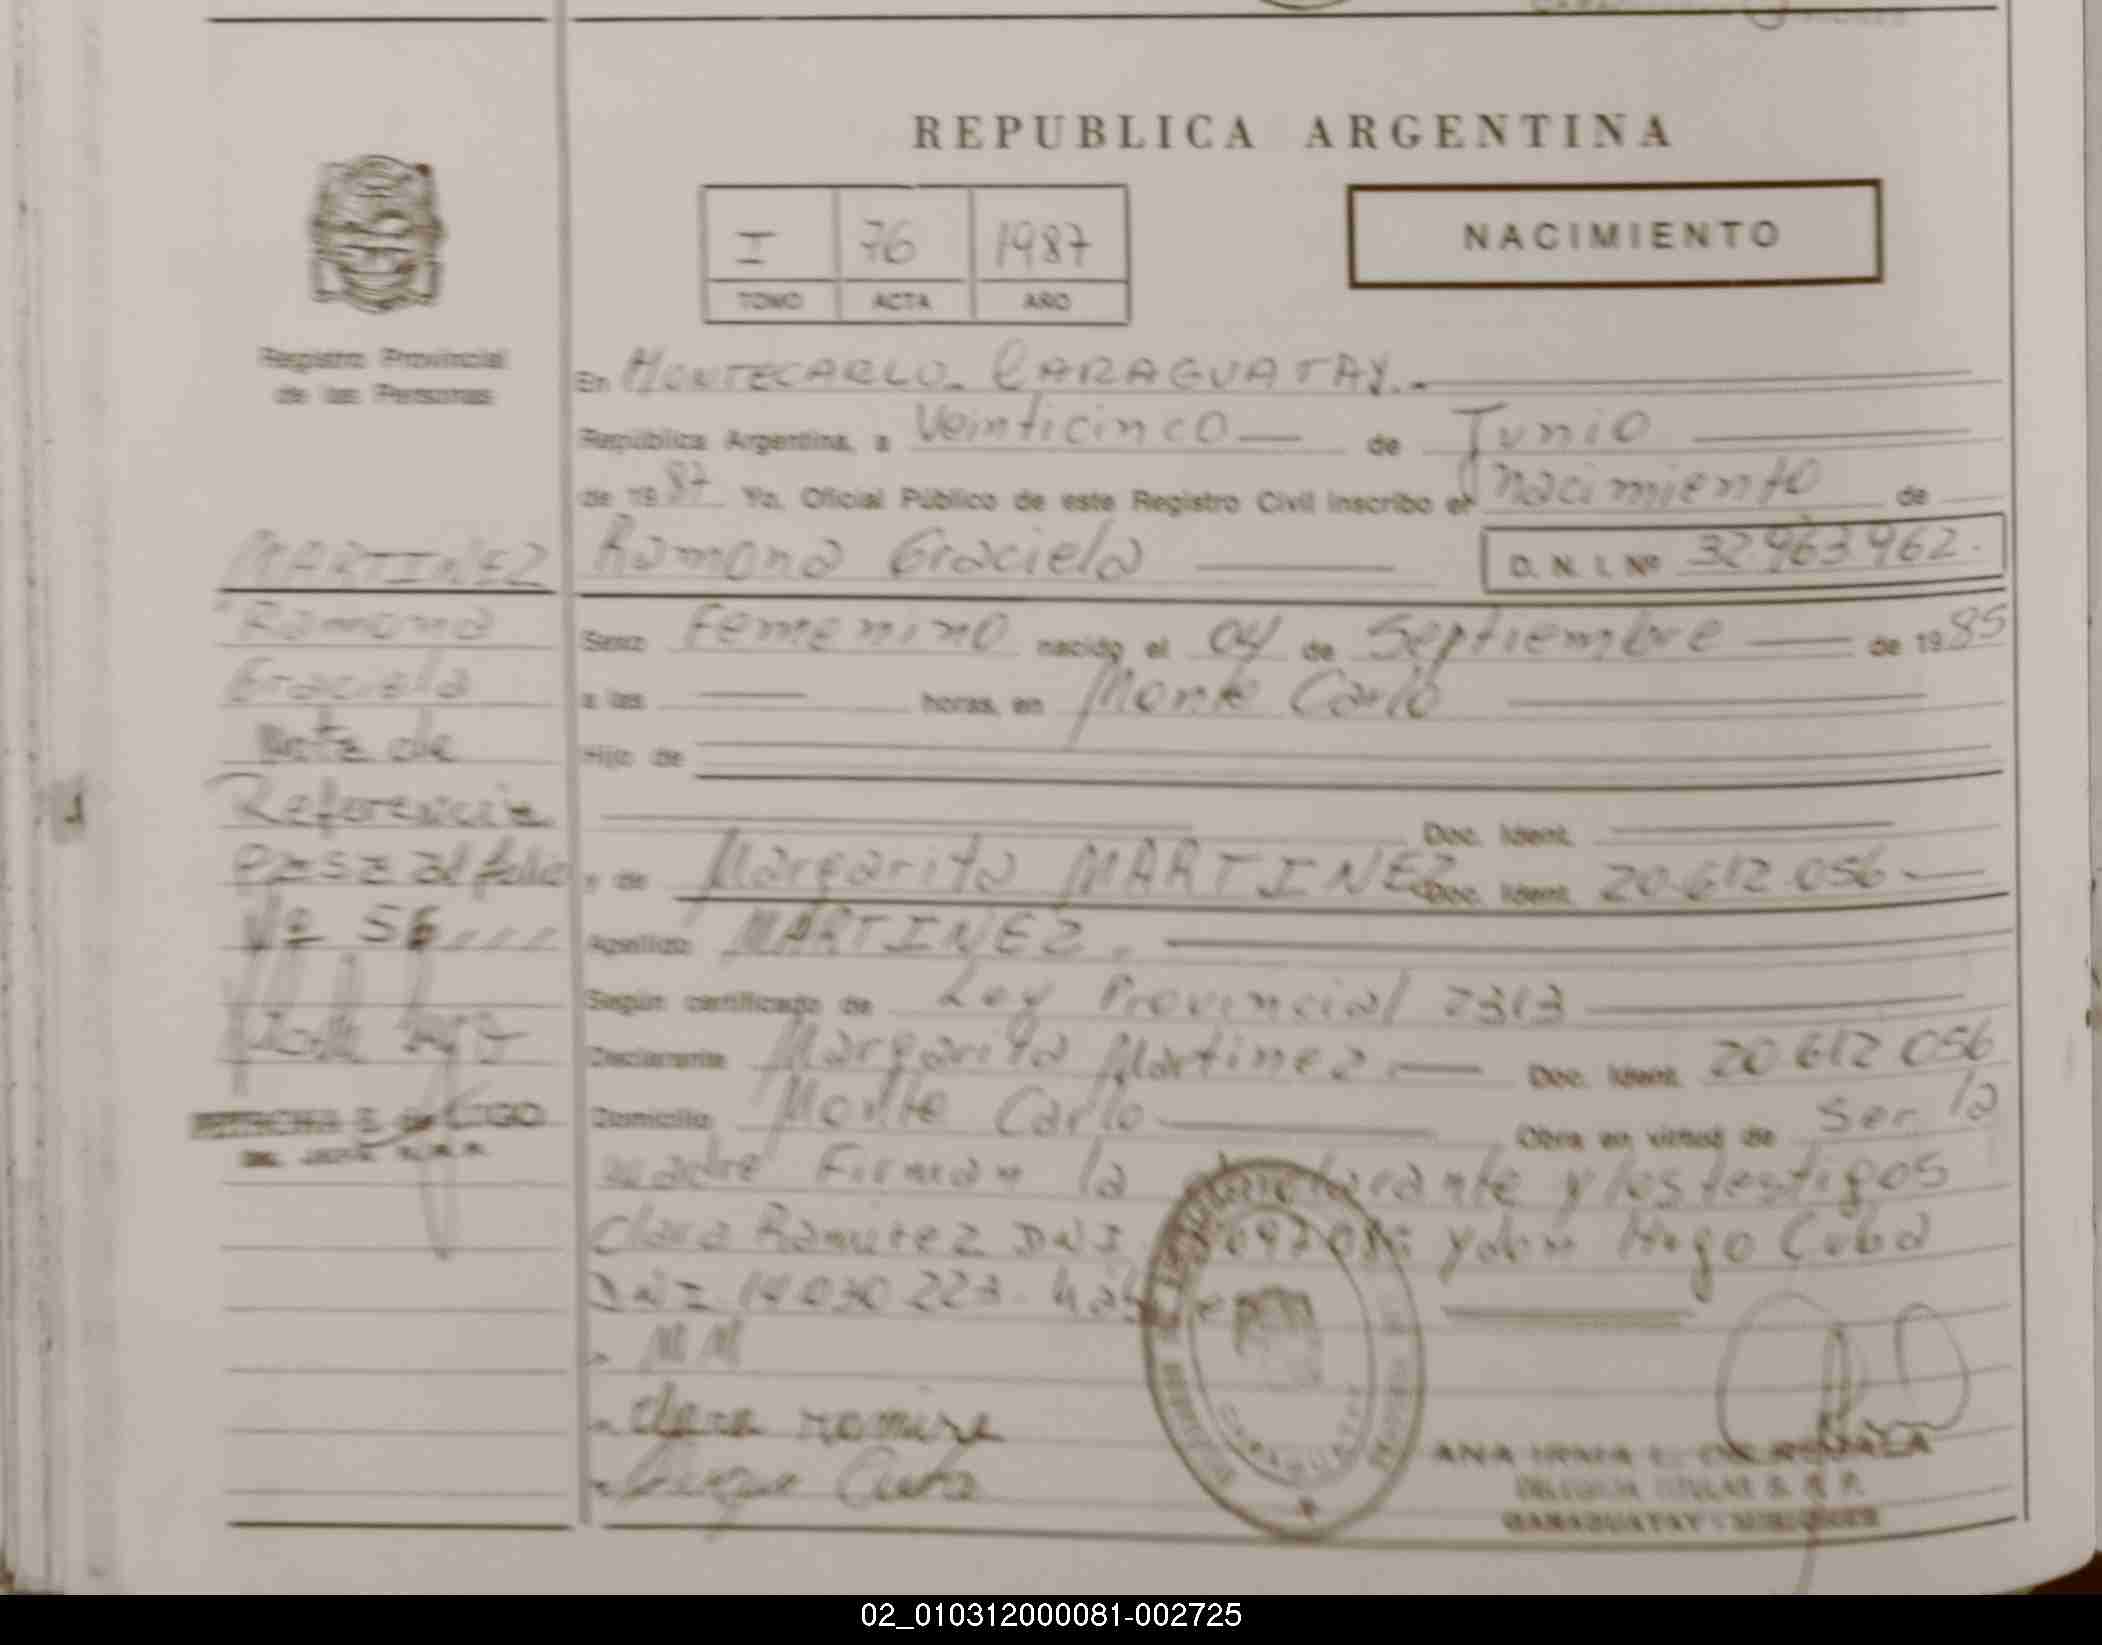 REPUBLICA ARGENTINA
I 76 1987
TOMO ACTA AÑO
NACIMIENTO
Registro Provincial
de las Personas
En MONTECARLO. CARAGUATAY.-
República Argentina, a Veinticinco de Junio
de 1987 Yo, Oficial Público de este Registro Civil inscribo el nacimiento de
MARTINEZ
Ramona Graciela D. N. I. Nº 32963962.
Ramona
Graciela
Sexo Femenino nacido el 04 de Septiembre de 1985
a las horas, en Monte Carlo
Nota de
Referencia
Pasa al folio
Nº 56
Hijo de
Doc. Ident.
y de Margarita MARTINEZ Doc. Ident. 20.612.056
Apellido MARTINEZ.
Según certificado de Ley Provincial 2313
Declarante Margarita Martinez Doc. Ident. 20 612 056
Domicilio Monte Carlo Obra en virtud de Ser la
madre Firman la y los testigos
Clara Ramirez DNI y don Hugo Cuba
DNI 14 030 223.
MM
Clara
Cuba
CARAGUATAY
ANA IRMA
CARAGUATAY - MISIONES
02_010312000081-002725